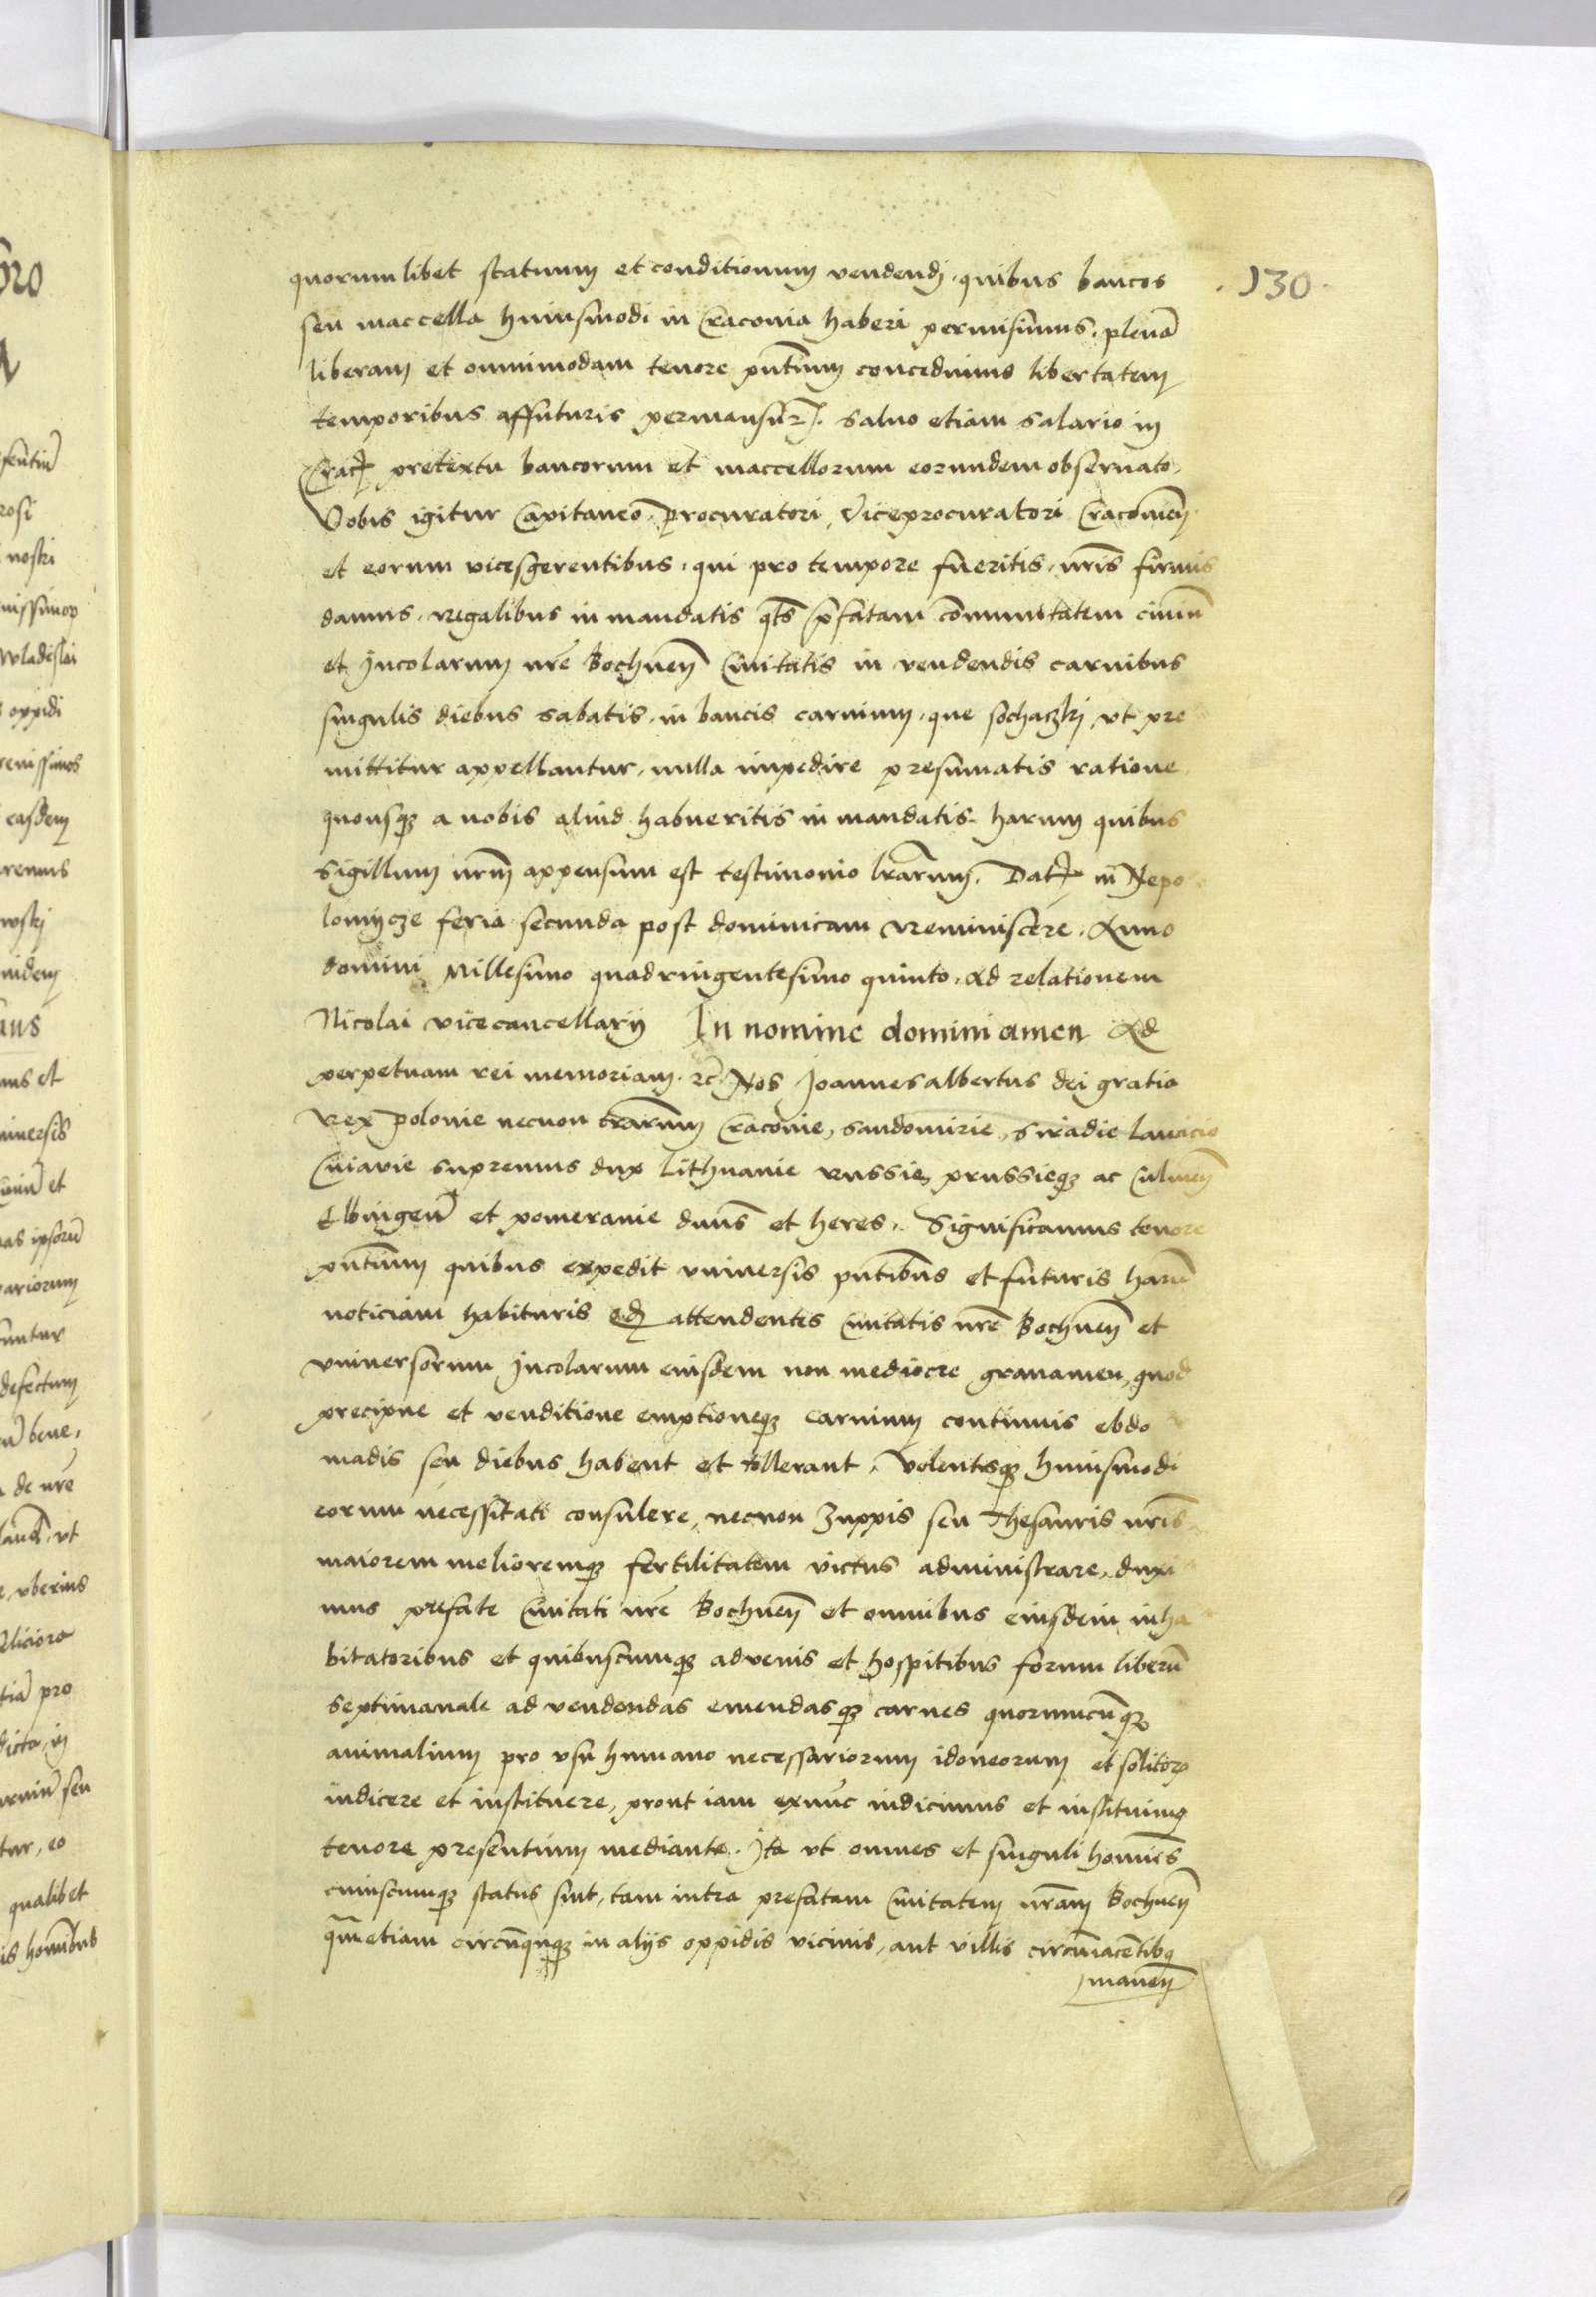 quorumlibet statuum et conditionum vendendi, quibus bancos
.130.
seu maccella huiusmodi in Craconia haberi permisimus. plenā
liberam et omnimodam tenore pn̄tium concedimus libertatem
temporibus affuturis permansur. Saluo etiam salario in
Crac pretextu bancorum et maccellorum eorundem obseruato.
Vobis igitur Capitaneo, procuratori, Viceprocuratori Cracouieñ
et eorum vicesgerentibus, qui pro tempore fueritis, nr̄is firmis
damus, regalibus in mandatis q̄ts p̄fatam cōmunitatem ciuiū
et Incolarum nr̄e Bochneñ Ciuitatis in vendendis carnibus
singulis diebus sabatis, in bancis carnium, que sochaczki, vt pre
mittitur appellantur, nulla impedire presumatis ratione
quousqȝ a nobis aliud habueritis in mandatis. harum quibus
sigillum nr̄m appensum est testimonio lr̄arum. Dat in Nepo
lomycze feria secunda post dominicam reminiscere. Anno
domini Millesimo quadringentesimo quinto. Ad relationem
Nicolai vicecancellarij In nomine domini amen Ad
perpetuam rei memoriam. rc̄. Nos Joannes albertus dei gratia
Rex polonie necnon tr̄arum Craconie, sandomirie, siradie lancicie
Cuiavie supremus dux Lithuanie russie, prussieqȝ ac Culmeñ
Elbingeñ et pomeranie dn̄us et heres. Significamus tenore
pn̄tium quibus expedit vniuersis pn̄tibus et futuris harū
noticiam habituris qd attendentes Ciuitatis nr̄e Bochneñ et
vniuersorum Incolarum eiusdem non mediocre grauamen, quod
precipue et venditione emptioneqȝ carnium continuis ebdo
madis seu diebus habent et tollerant, Volentesqȝ huiusmodi
eorum necessitati consulere, necnon zuppis seu Thesauris nr̄is
maiorem melioremqȝ fertilitatem victus administrare, duxi
mus prefate Ciuitati nr̄e Bochneñ et omnibus eiusdem inha
bitatoribus et quibuscumqȝ aduenis et hospitibus forum liberū
septimanale ad vendendas emendasqȝ carnes quorumcūqȝ
animalium pro vsu humano necessariorum idoneorum et solitorꝝ
indicere et instituere, prout iam exnūc indicimus et instituimꝰ
tenore presentium mediante. Ita vt omnes et singuli homīes
cuiuscumqȝ status sint, tam intra prefatam Ciuitatem nr̄am Bochneñ
q̄metiam circūquaqȝ in alijs oppidis vicinis, aut villis circūiacētibꝰ
maneñ